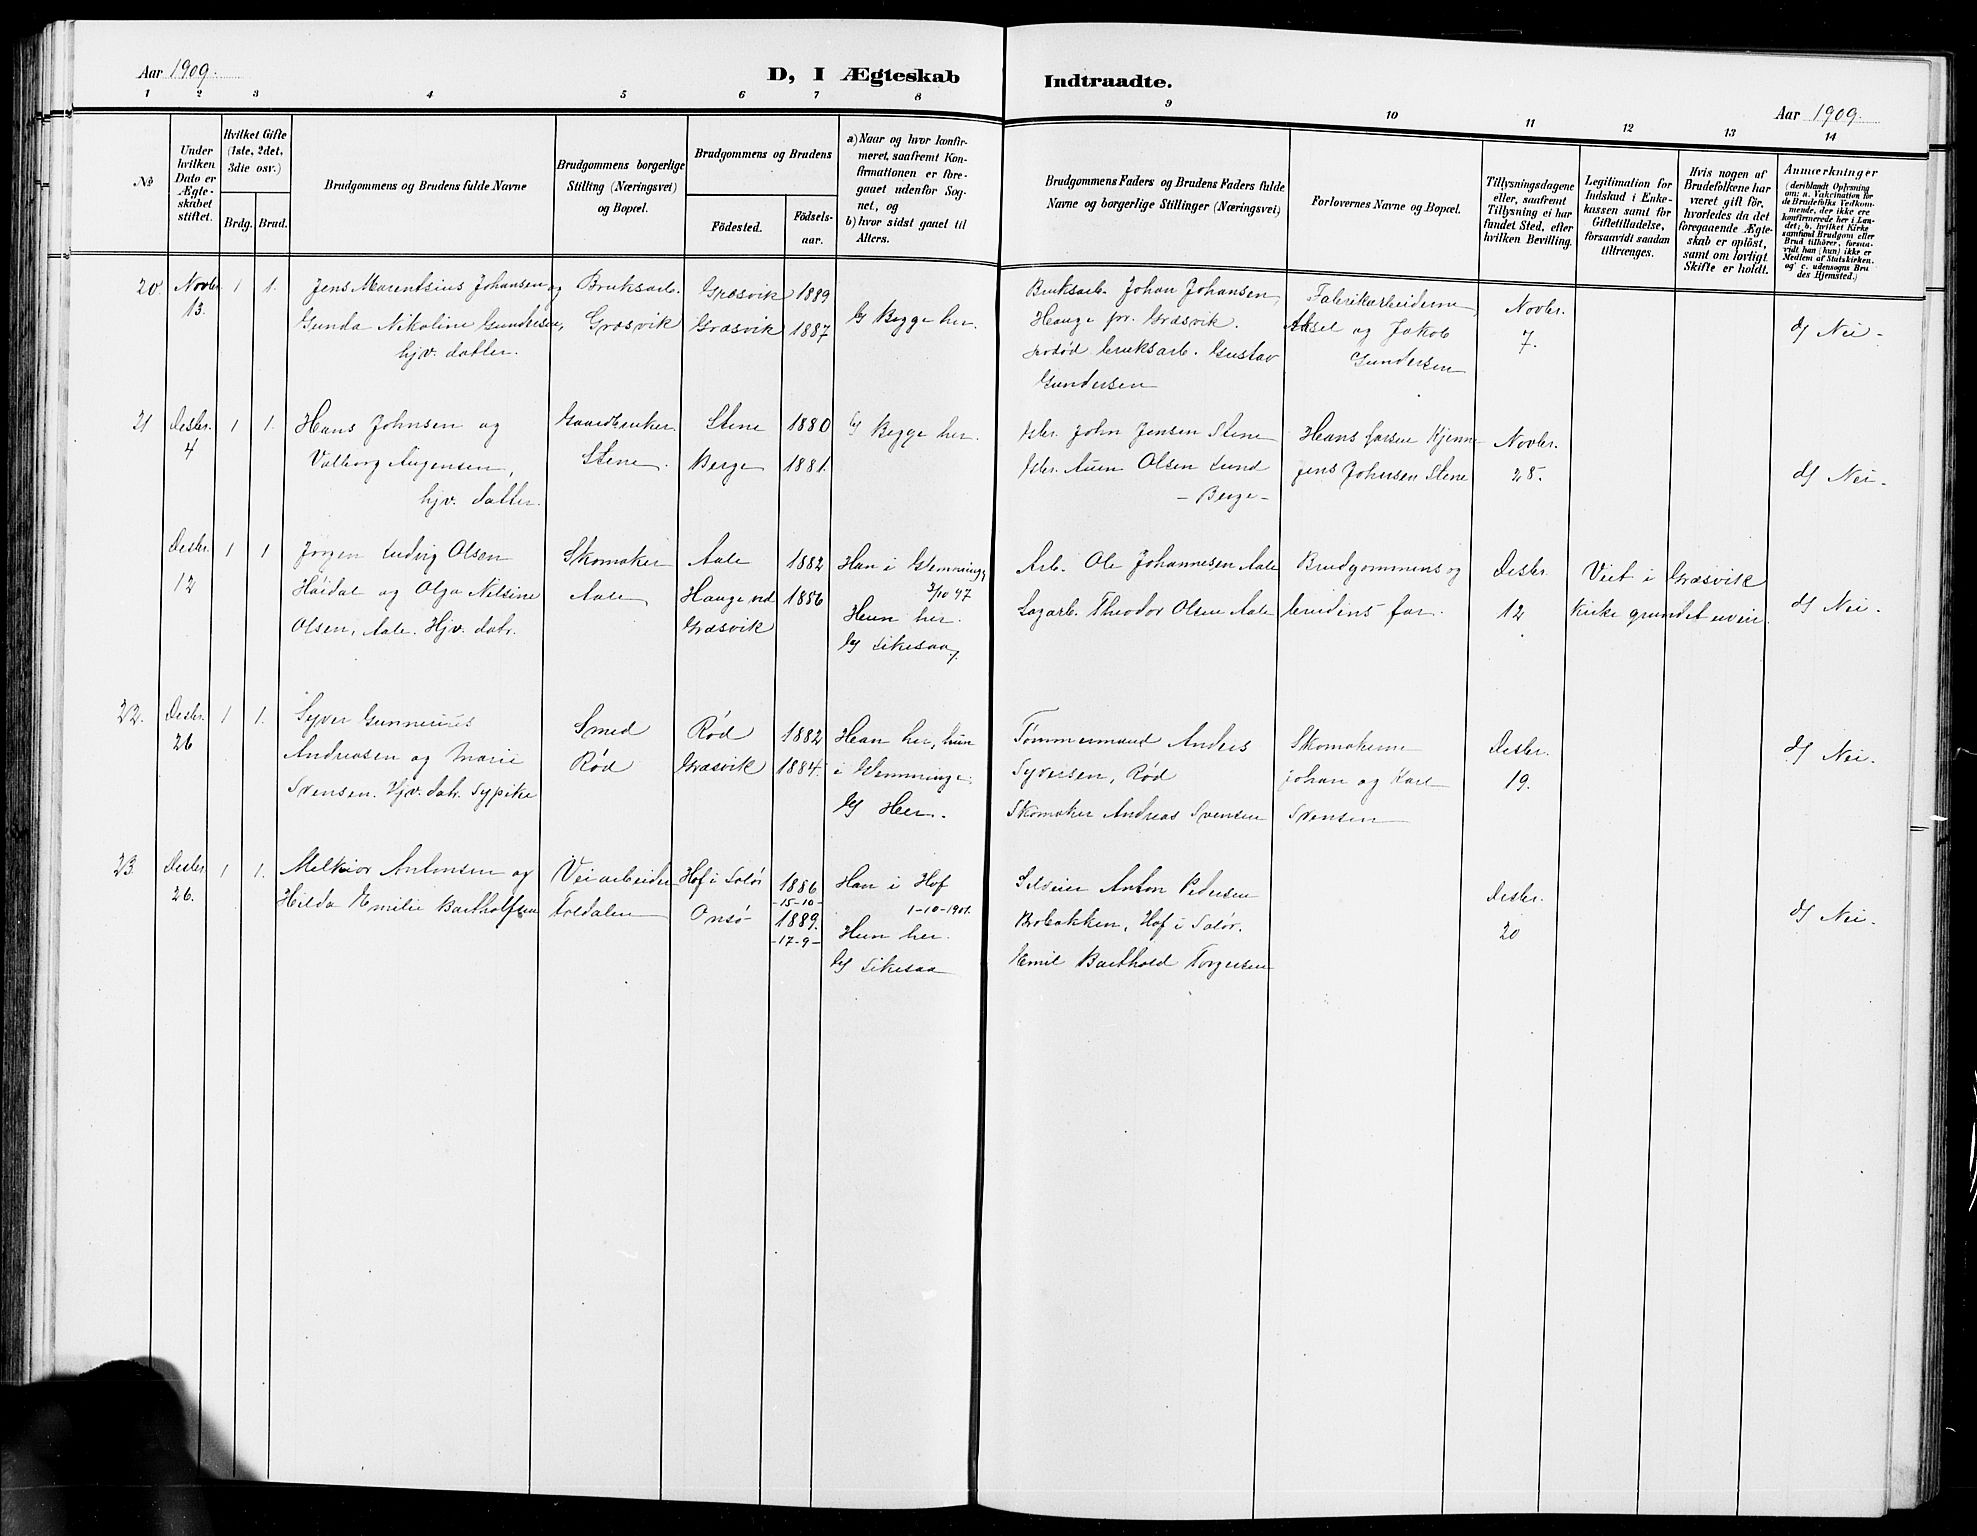 Aar 1909.
D, I Ægteskab
Indtraadte.
Aar 1909.
1 2 3 4 5 6 7 8 9 10 11 12 13 14
No
Under hvilken Dato er Ægteskabet stiftet.
Hvilket Gifte (1ste, 2det, 3die osv.)
Brdg. Brud.
Brudgommens og Brudens fulde Navne
Brudgommens borgerlige Stilling (Næringsvei) og Bopæl.
Brudgommens og Brudens
Födested.
Födselsaar.
a) Naar og hvor konfirmeret, saafremt Konfirmationen er foregaaet udenfor Sognet, og
b) hvor sidst gaaet til Alters.
Brudgommens Faders og Brudens Faders fulde Navne og borgerlige Stillinger (Næringsvei)
Forlovernes Navne og Bopæl.
Tillysningsdagene eller, saafremt Tillysning ei har fundet Sted, efter hvilken Bevilling.
Legitimation for Indskud i Enkekassen samt for Giftetilladelse, forsaavidt saadan tiltrænges.
Hvis nogen af Brudefolkene har været gift för, hvorledes da det foregaaende Ægteskab er oplöst, samt om lovligt Skifte er holdt.
Anmærkninger
(deriblandt Oplysning om: a. Vakcination for de Brudefolks Vedkommende, der ikke ere konfirmerede her i Landet; b. hvilket Kirkesamfund Brudgom eller Brud tilhörer, forsaavidt han (hun) ikke er Medlem af Statskirken, og c. udensogns Brudes Hjemsted.)
20. Novbr. 13. 1 1. Jens Marentsius Johansen og
Gunda Nikoline Gundersen,
hjv. datter.
Bruksarb.
Græsvik
Græsvik 1889
Græsvik 1887
b) Begge her.
Bruksarb. Johan Johansen,
Hauge pr. Græsvik.
bruksarb. Gustav
Gundersen
Fabrikarbeiderne
Aksel og Jakob
Gundersen
Novbr.
7.
d) Nei.
21 Desbr. 4 1 1. Hans Johnsen og
Valborg Augensen,
hjv. datter.
Gaardbruker
Stene.
Stene 1880
Berge 1881.
b) Begge her.
John Jensen Stene
Olsen Lund
- Berge -
Hans Larsen
Jens Johnsen Stene
Novbr.
28.
d) Nei.
Desbr. 12 1 1 Jørgen Ludvig Olsen
Høidal og Olga Nilsine
Olsen, Aale. Hjv. datr.
Skomaker
Aale
Aale 1882
Hauge ved 1886
Græsvik
Han i Glemminge,
3/10 97
Hun her.
b) Likesaa.
Arb. Ole Johannesen Aale
Sagarb. Theodor Olsen Aale
Brudgommens og
brudens far.
Desbr.
12
Viet i Græsvik
Kirke grundet uveir.
d) Nei.
22. Desbr. 26 1 1. Syver Gunnerius
Andreasen og Marie
Svensen. Hjv. datr. Sypike
Smed
Rød
Rød 1882
Græsvik 1884.
Han her, hun
i Glemminge.
b) Her.
Tømmermand Anders
Syversen, Rød
Skomaker Andreas Svensen
Skomakerne
Johan og Karl
Svensen
Desbr.
19.
d) Nei.
23. Desbr. 26. 1 1. Melkior Antonsen og
Hilda Emilie Bartholfsen
Veiarbeider
Hof i Solør 1886
-15-10-
Onsø 1889.
-17-9-
Han i Hof
1-10-1901.
Hun her.
b) Likesaa
Anton Pedersen
Brobakken, Hof i Solør.
Emil Barthold Torgersen
Desbr.
20
d) Nei.